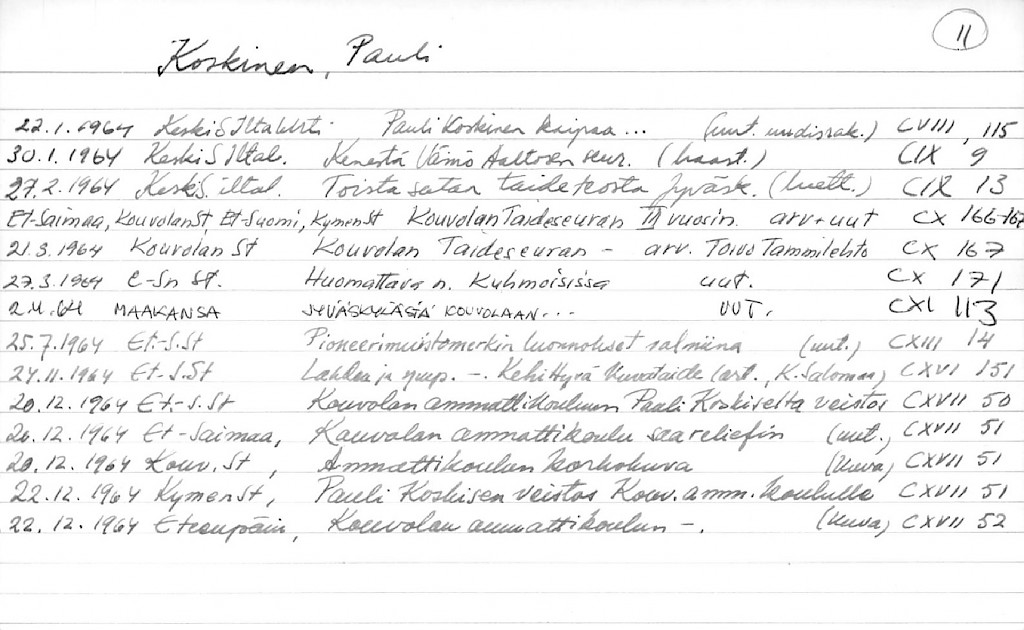 11
Koskinen, Pauli
22.1.1964 KeskiS Iltalehti Pauli Koskinen kaipaa... (uut. uudisrak.) CVIII, 115
30.1.1964 KeskiS Iltal. Kenestä Väinö Aaltosen seur. (haast.) CIX 9
27.2.1964 KeskiS. iltal. Toista sataa taideteosta Jyväsk. (luett.) CIX 13
Et-Saimaa, KouvolanSt Et-Suomi, KymenSt Kouvolan Taideseuran III vuosin. arv+uut CX 166-167
21.3.1964 Kouvolan St Kouvolan Taideseuran - arv. Toivo Tammilehto CX 167
27.3.1964 E-Sn St. Huomattava n. Kuhmoisissa uut. CX 171
2.4.64 MAAKANSA JYVÄSKYLÄSTÄ KOUVOLAAN... UUT. CXI 113
25.7.1964 Et.-S.St Pioneerimuistomerkin luonnokset valmiina (uut.) CXIII 14
24.11.1964 Et-S.St Lahden ja ymp. -. Kehittyvä kuvataide (art., K. Salomaa) CXVI 151
20.12.1964 Et.-S.St Kouvolan ammattikouluun Pauli Koskiselta veistos CXVII 50
20.12.1964 Et-Saimaa, Kouvolan ammattikoulu saa reliefin (uut., CXVII 51
20.12.1964 Kouv.St, Ammattikoulun korkokuva (kuva) CXVII 51
22.12.1964 KymenSt, Pauli Koskisen veistos Kouv.amm.koululle CXVII 51
22.12.1964 Eteenpäin, Kouvolan ammattikoulun -. (kuva) CXVII 52